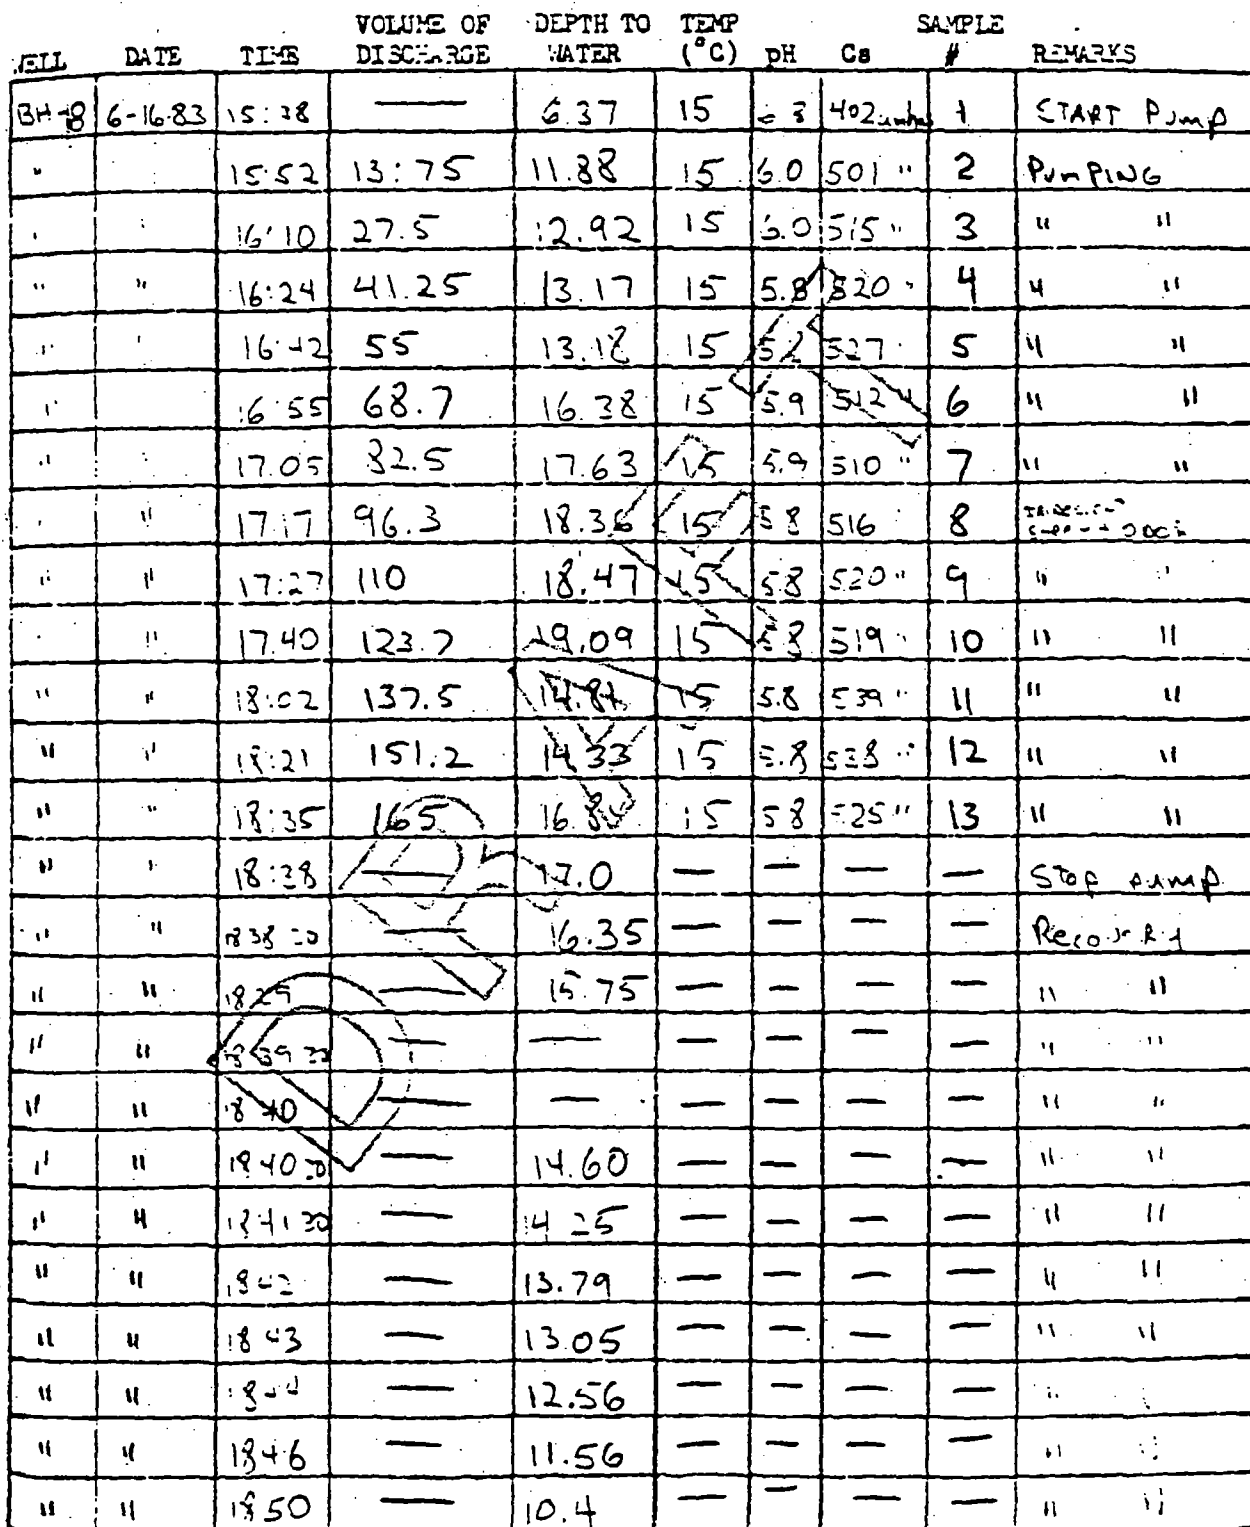 VOLUME OF DEPTH TO TEMP SAMPLE
WELL DATE TIME DISCHARGE WATER (°C) pH Cs # REMARKS
BH-8 6-16-83 15:38 — 6.37 15 402 umhos 1 START Pump
" 15:52 13:75 11.88 15 6.0 501 " 2 PumPING
" " 16:10 27.5 12.92 15 6.0 515 " 3 " "
" " 16:24 41.25 13.17 15 5.8 520 " 4 " "
" " 16:42 55 13.18 15 527 " 5 " "
" 16:55 68.7 16.38 15 5.9 512 " 6 " "
" 17:05 82.5 17.63 15 5.9 510 " 7 " "
" " 17:17 96.3 18.36 15 5.8 516 8
" " 17:27 110 18.47 15 5.8 520 " 9 " "
" " 17:40 123.7 19.09 15 5.8 519 " 10 " "
" " 18:02 137.5 14.81 15 5.8 539 " 11 " "
" " 18:21 151.2 14.33 15 5.8 538 " 12 " "
" " 18:35 165 15 5.8 525 " 13 " "
" " 18:38 — 17.0 — — — — Stop pump
" " — 16.35 — — — — Recovery
" " — 15.75 — — — — " "
" " — — — — — — " "
" " 18 40 — — — — — — " "
" " — 14.60 — — — — " "
" " — 14.25 — — — — " "
" " 1842 — 13.79 — — — — " "
" " 1843 — 13.05 — — — — " "
" " 1844 — 12.56 — — — — " "
" " 1846 — 11.56 — — — — " "
" " 1850 — 10.4 — — — — " "